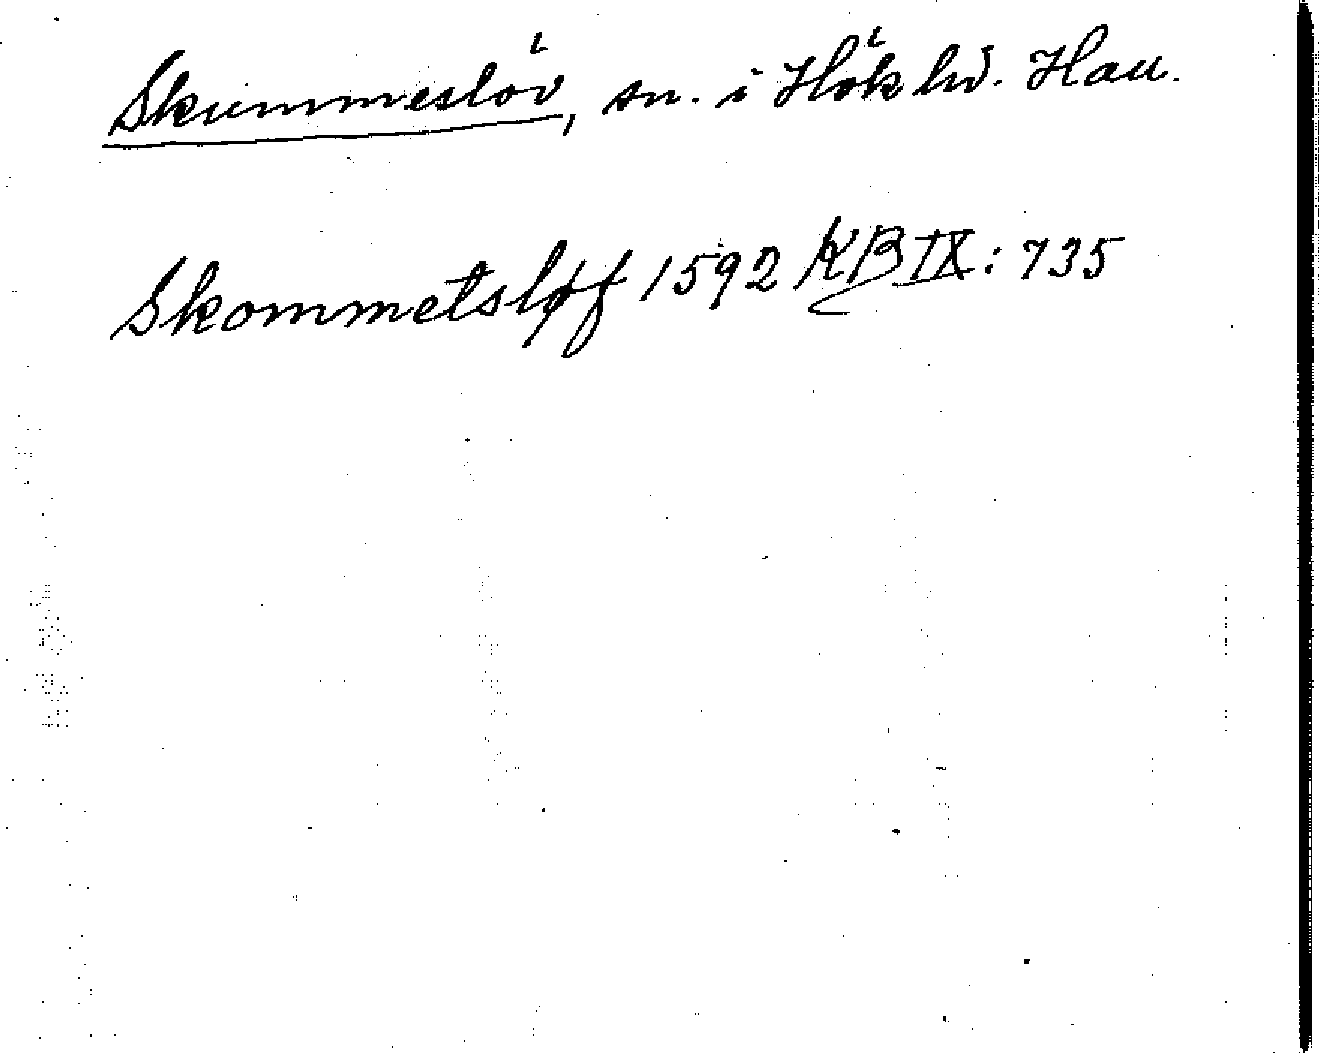 Skummeslöv, sn. i Hök hd. Hall.
Skommetsløf 1592 KB IX: 735